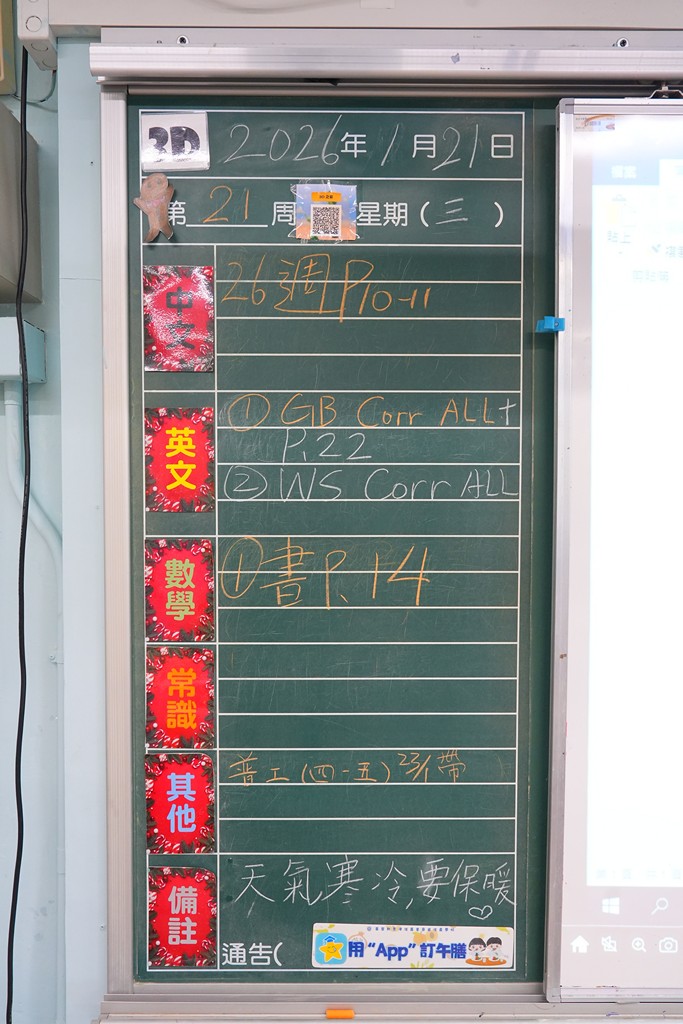 3D 2026年1月21日
第21周 星期(三)
中文
26週P10-11
英文
① GB Corr ALL+
P.22
② WS Corr ALL
數學
①書P.14
常識
其他
普工(四-五)23/1帶
備註
天氣寒冷,要保暖
通告(
用“App”訂午膳